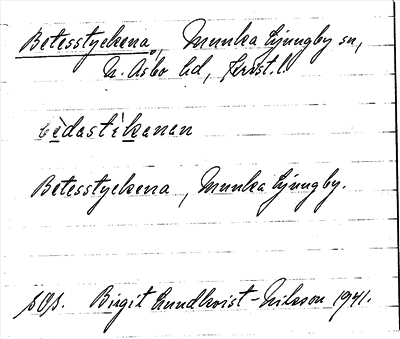 Betesstyckena, Munka Ljungby sn,
N. Åsbo hd, Krist. l.
bèdastìkanan
Betesstyckena, Munka Ljungby.
sOs. Birgit Lundkvist-Nilsson 1941.